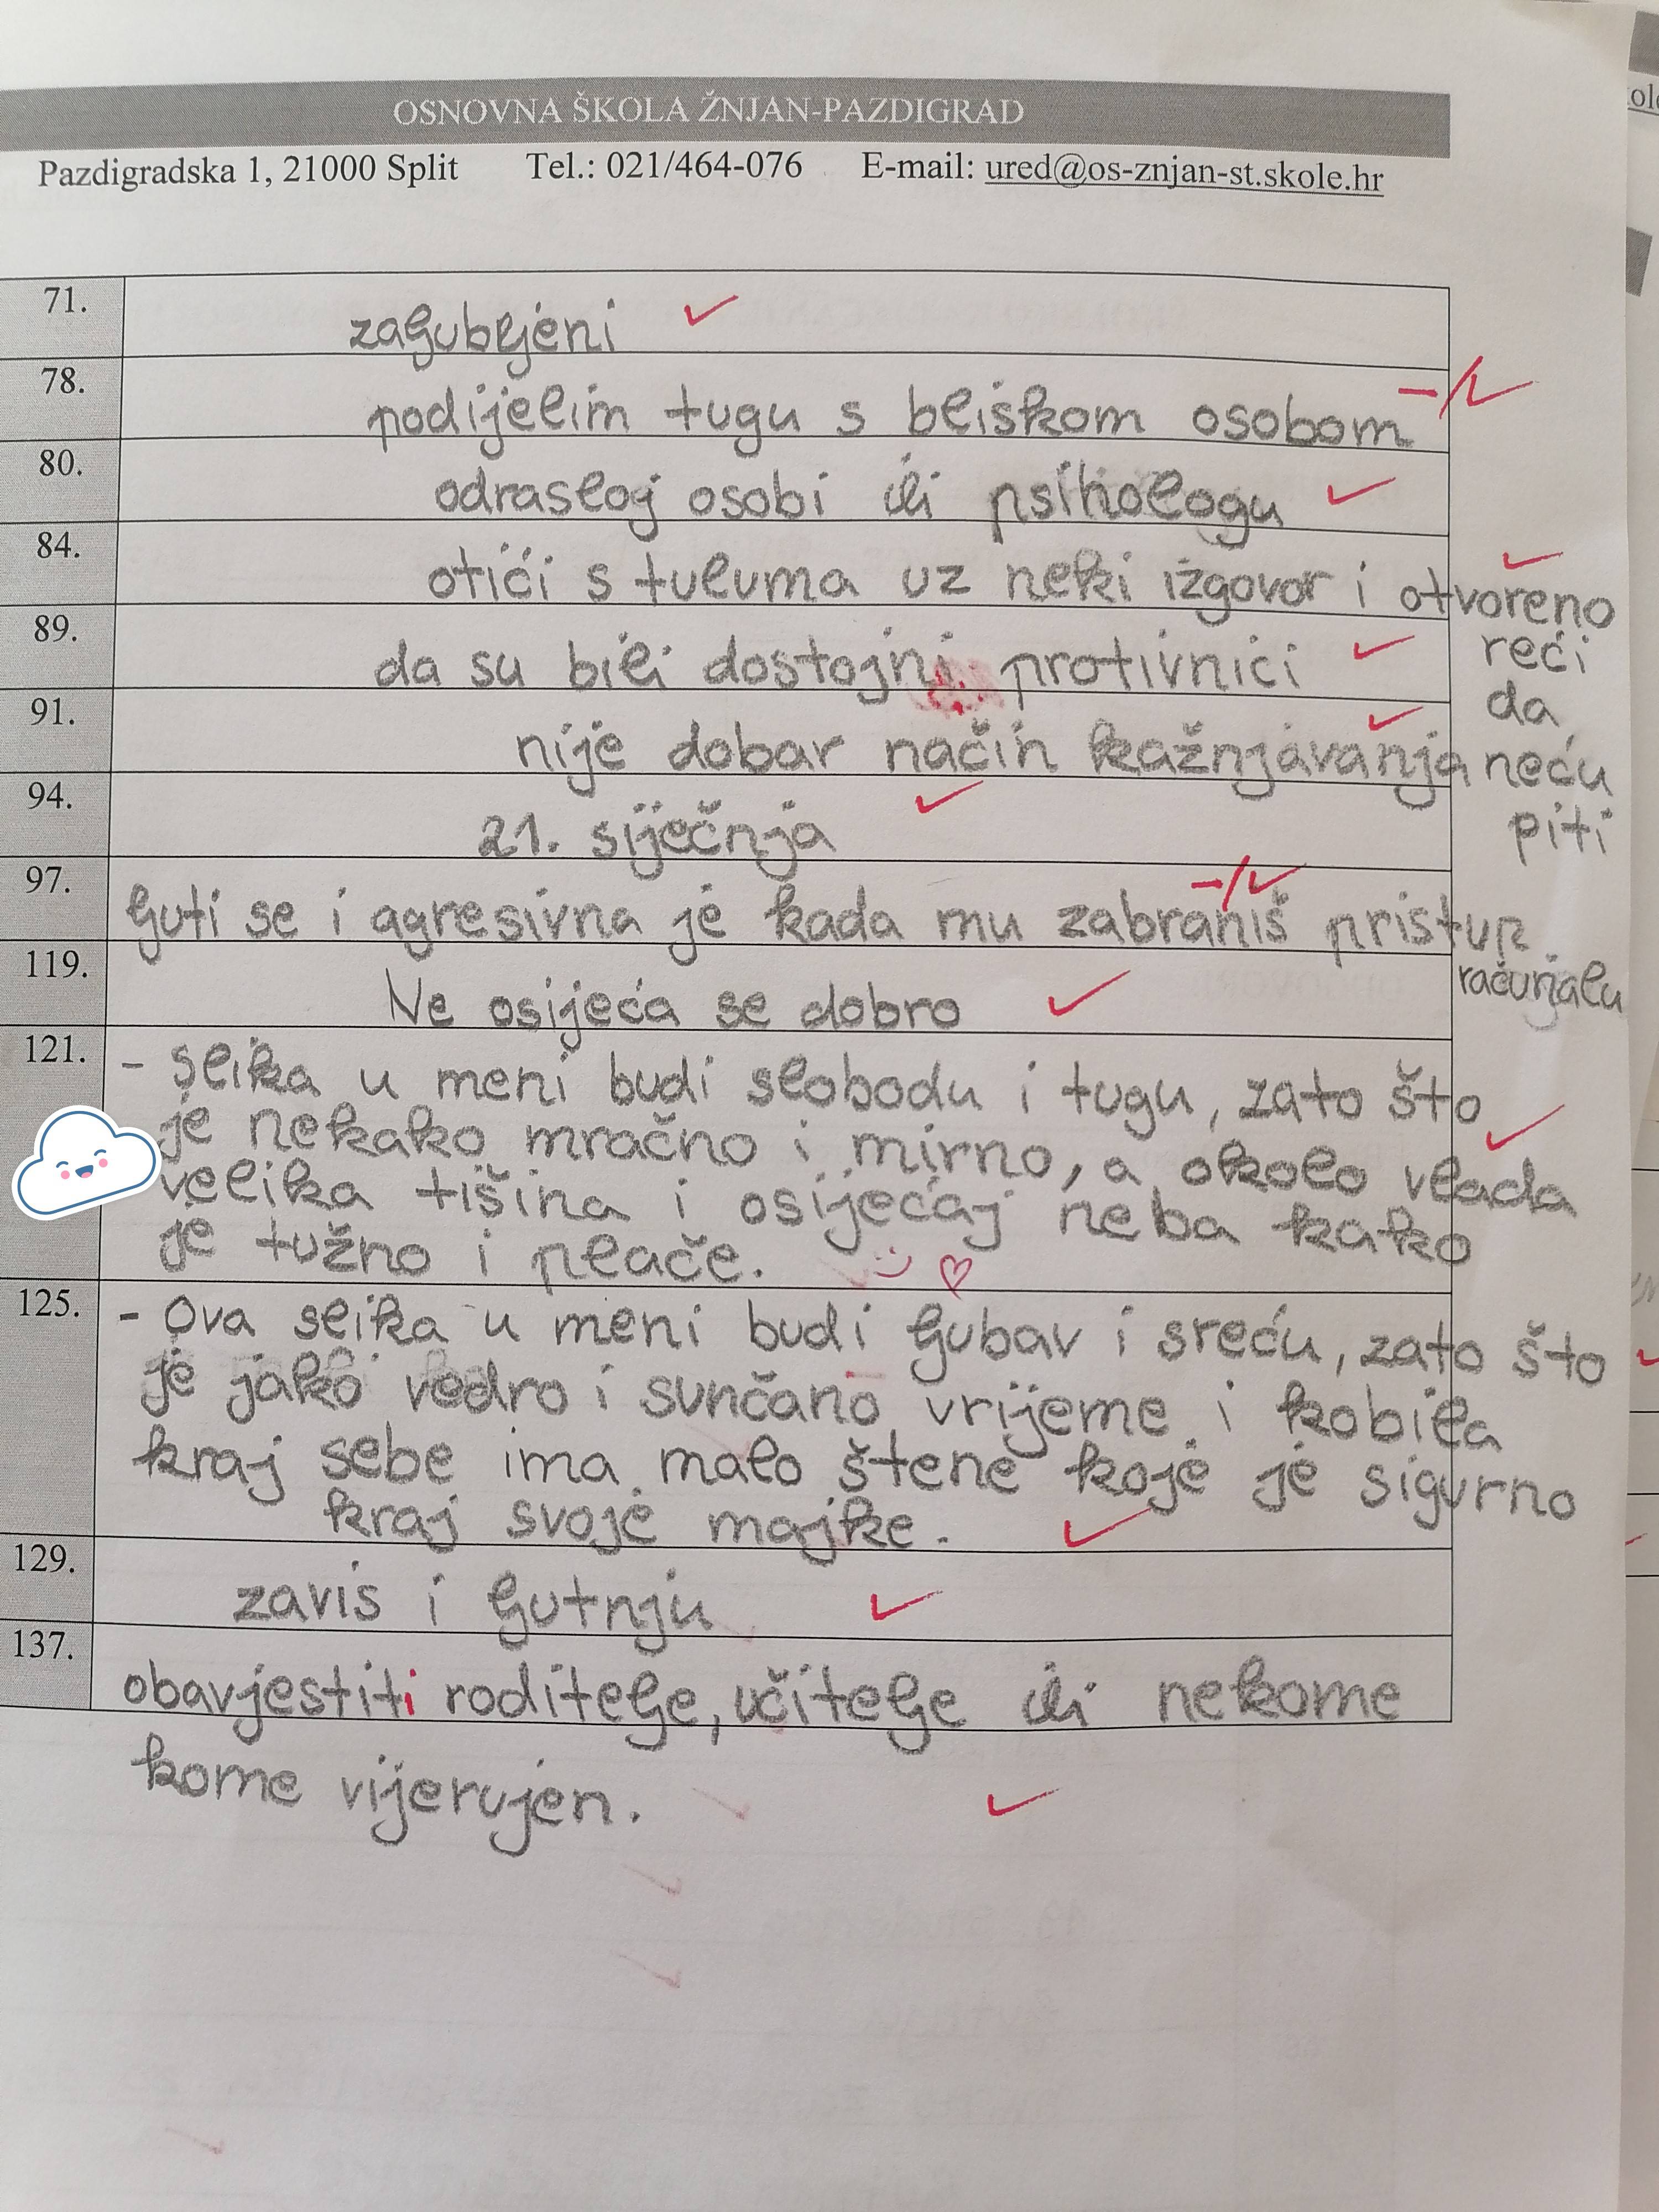 OSNOVNA ŠKOLA ŽNJAN-PAZDIGRAD
Pazdigradska 1, 21000 Split Tel.: 021/464-076 E-mail: ured@os-znjan-st.skole.hr
71. zagubljeni
78. podijelim tugu s bliskom osobom
80. odrasloj osobi ili psihologu
84. otići s tuluma uz neki izgovor i otvoreno
reći
da
neću
piti
89. da su bili dostojni protivnici
91. nije dobar način kažnjavanja
94. 21. siječnja
97. ljuti se i agresivna je kada mu zabraniš pristup
računjalu
119. Ne osijeća se dobro
121. - Slika u meni budi slobodu i tugu, zato što
je nekako mračno i mirno, a okolo vlada
velika tišina i osijećaj neba kako
je tužno i plače.
125. - Ova slika u meni budi ljubav i sreću, zato što
je jako vedro i sunčano vrijeme i kobila
kraj sebe ima malo štene koje je sigurno
kraj svoje majke.
129. zavis i ljutnju
137. obavjestiti roditelje, učitelje ili nekome
kome vijerujen.